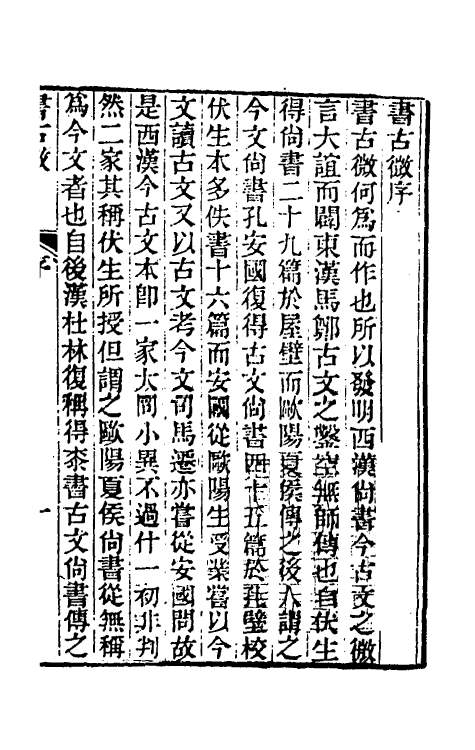 書古微序
書古微何爲而作也所以發明西漢尙書今古文之微
言大誼而闢東漢馬鄭古文之鑿空無師傳也自伏生
得尙書二十九篇於屋壁而歐陽夏侯傳之後人謂之
今文尙書孔安國復得古文尙書四十五篇於孔壁校
伏生本多佚書十六篇而安國從歐陽生受業嘗以今
文讀古文又以古文考今文司馬遷亦嘗從安國問故
是西漢今古文本卽一家大同小異不過什一初非判
然二家其稱伏生所授但謂之歐陽夏侯尙書從無稱
爲今文者也自後漢杜林復稱得桼書古文尙書傳之
書古微
序
一